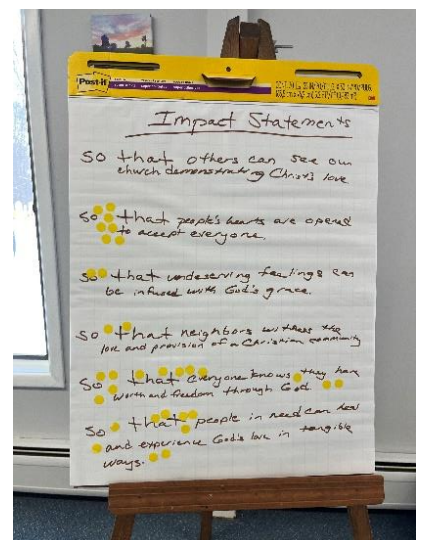 Post-it
Impact Statements
So that others can see our
church demonstrating Christ's love
So that people's hearts are opened
to accept everyone.
So that undeserving feelings can
be infused with God's grace.
So that neighbors witness the
love and provision of a Christian community
So that everyone knows they have
worth and freedom through God
So that people in need can feel
and experience God's love in tangible
ways.